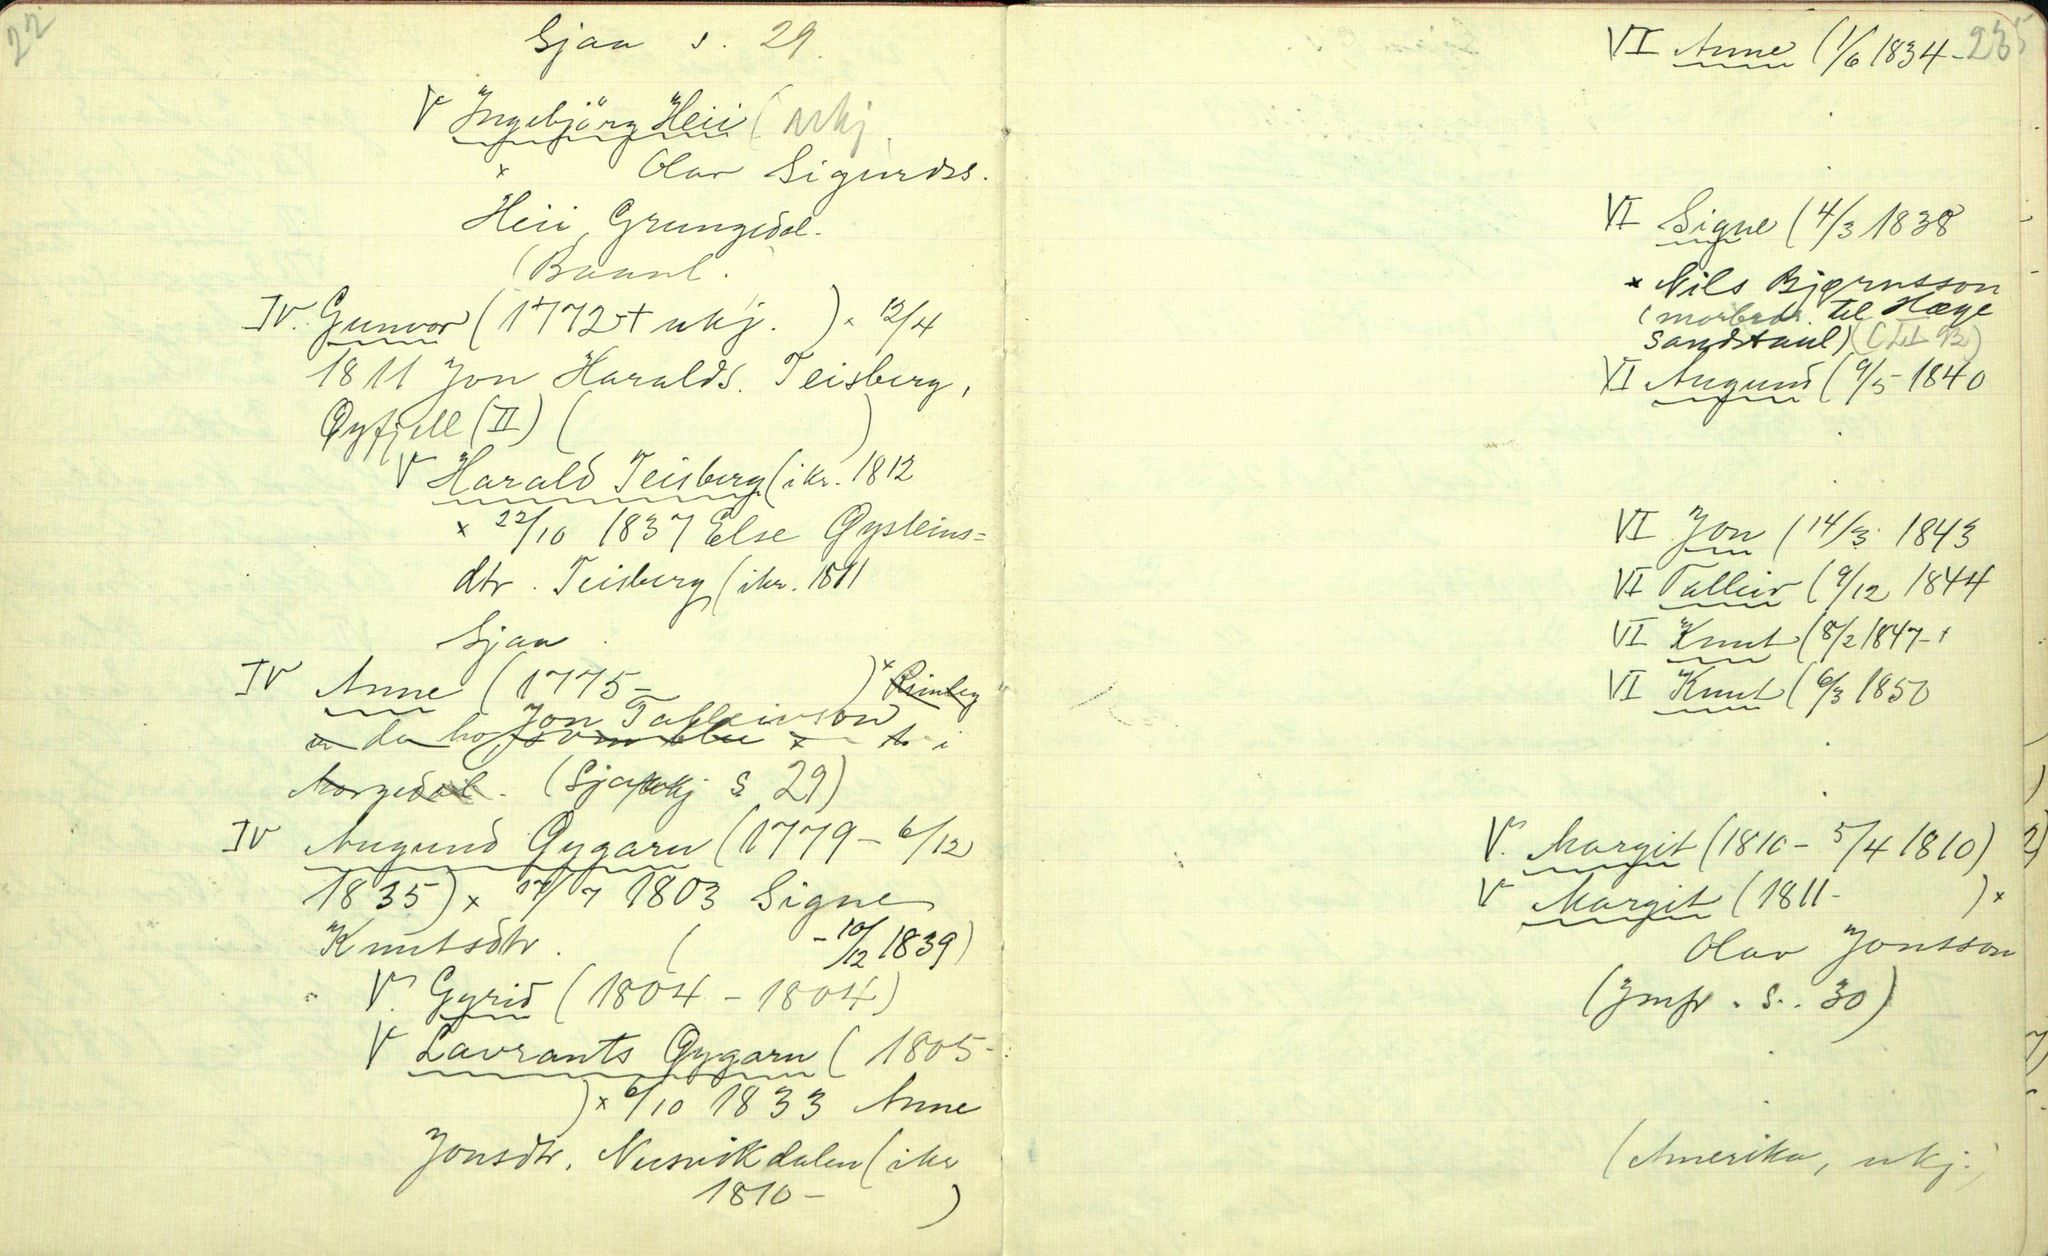 22
Sjaa s. 29.
V Ingebjörg Heii (ukj
x Olav Sigurds.
Heii, Grungedal.
(Baanl.
IV. Gunvor (1772 + ukj. ) x 12/4
1811 Jon Haralds. Teisberg,
Øyfjell (II) ( )
V Harald Teisberg (ikr. 1812
x 22/10 1837 Else Øysteins=
dtr. Teisberg (ikr. 1811
Sjaa
IV Anne (1775- ) x
Jon Talleivson
Morgedal. (Sjaa ukj s. 29)
IV Augund Øygarn (1779 - 6/12
1835) x 17/7 1803 Signe
Knutsdtr. ( - 10/12 1839)
V. Gyrid (1804 - 1804)
V Lavrants Øygarn (1805-
) x 6/10 1833 Anne
Jonsdtr. Nesvikdalen (ikr
1810- )
235
VI Anne (1/6 1834-
VI Signe (4/3 1838
x Nils Bjørnsson
(morbror til Hæge
Sandstaul) (LI 92)
VI Augund (9/5 1840
VI Jon (14/3 1843
VI Talleiv (9/12 1844
VI Knut (8/2 1847-+
VI Knut (6/3 1850
V. Margit (1810 - 5/4 1810)
V Margit (1811- ) x
Olav Jonsson
(Jmfr. s. 30)
(Amerika, ukj.)